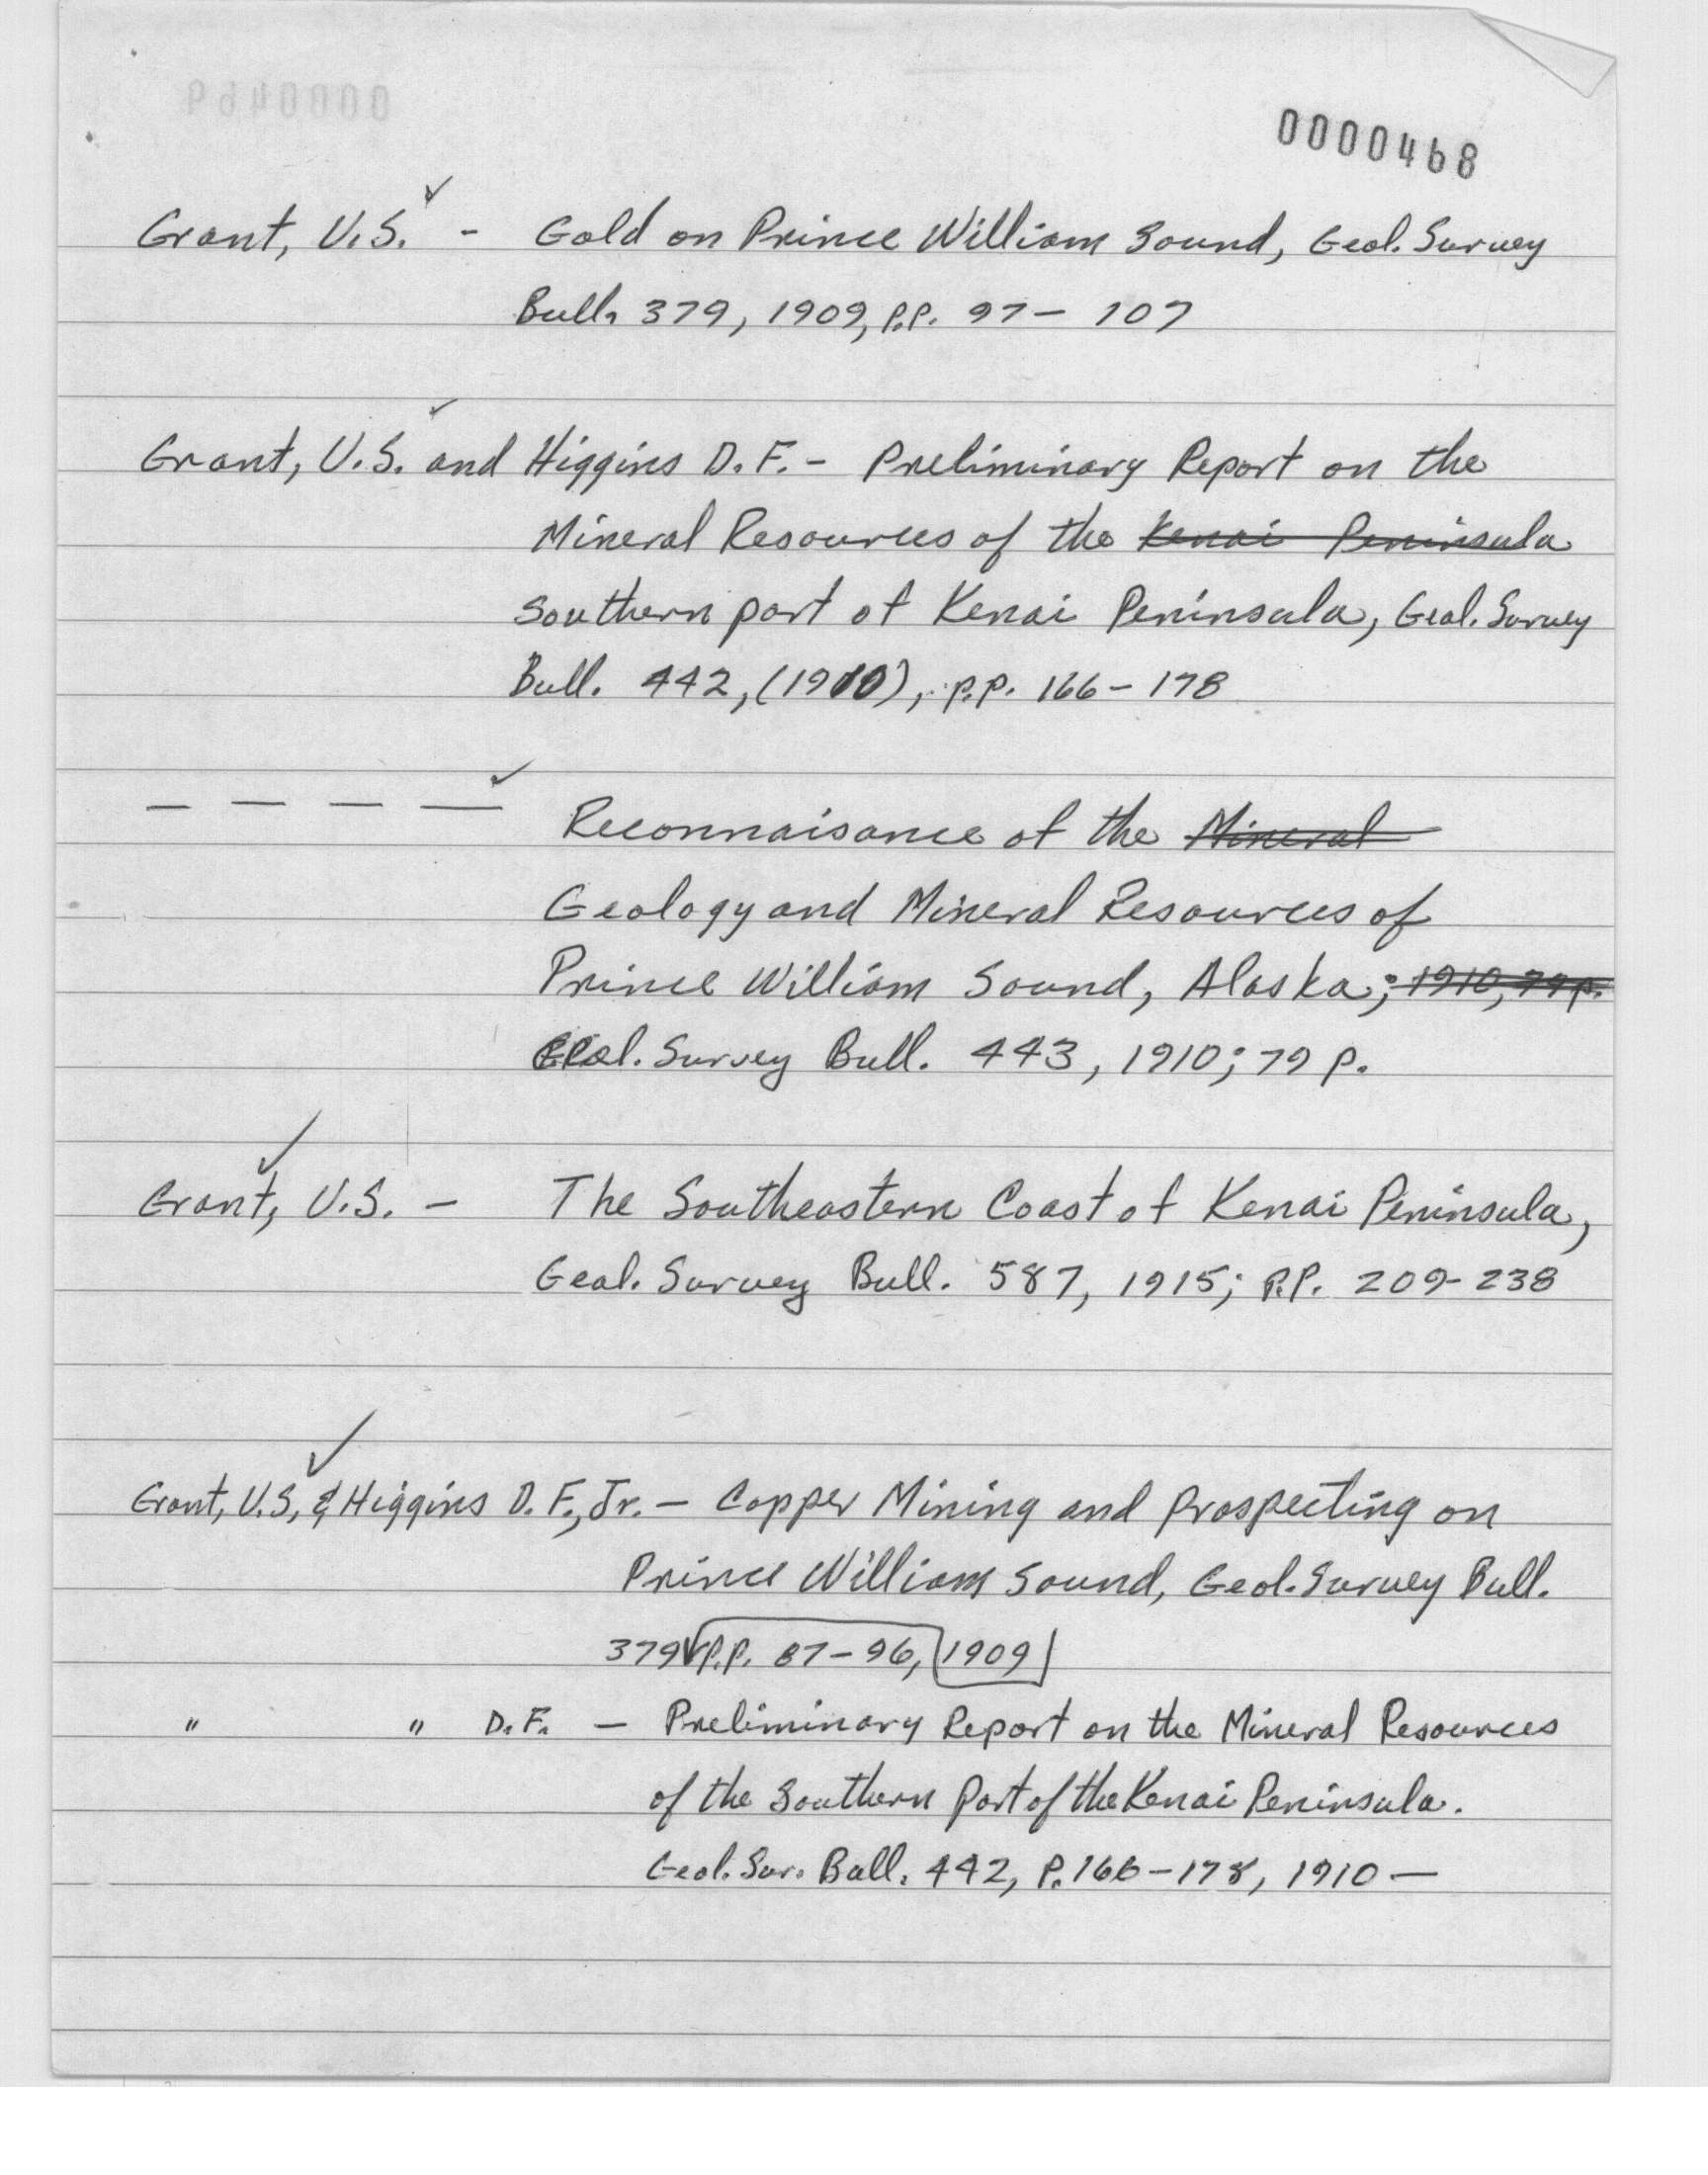 0000469
0000468
Grant, U.S. - Gold on Prince William Sound, Geol. Survey
Bull. 379, 1909, P.P. 97 - 107
Grant, U.S. and Higgins D. F. - Preliminary Report on the
Mineral Resources of the Kenai Peninsula
Southern part of Kenai Peninsula, Geol. Survey
Bull. 442, (1910), P.P. 166 - 178
— — — — Reconnaisance of the Mineral
Geology and Mineral Resources of
Prince William Sound, Alaska; 1910, 79 p.
Geol. Survey Bull. 443, 1910; 79 P.
Grant, U.S. - The Southeastern Coast of Kenai Peninsula,
Geol. Survey Bull. 587, 1915; P.P. 209-238
Grant, U.S, & Higgins D. F., Jr. - Copper Mining and Prospecting on
Prince William Sound, Geol. Survey Bull.
379 P.P. 87-96, 1909
" " D.F. - Preliminary Report on the Mineral Resources
of the Southern Part of the Kenai Peninsula.
Geol. Sur. Bull. 442, P. 166-178, 1910 —